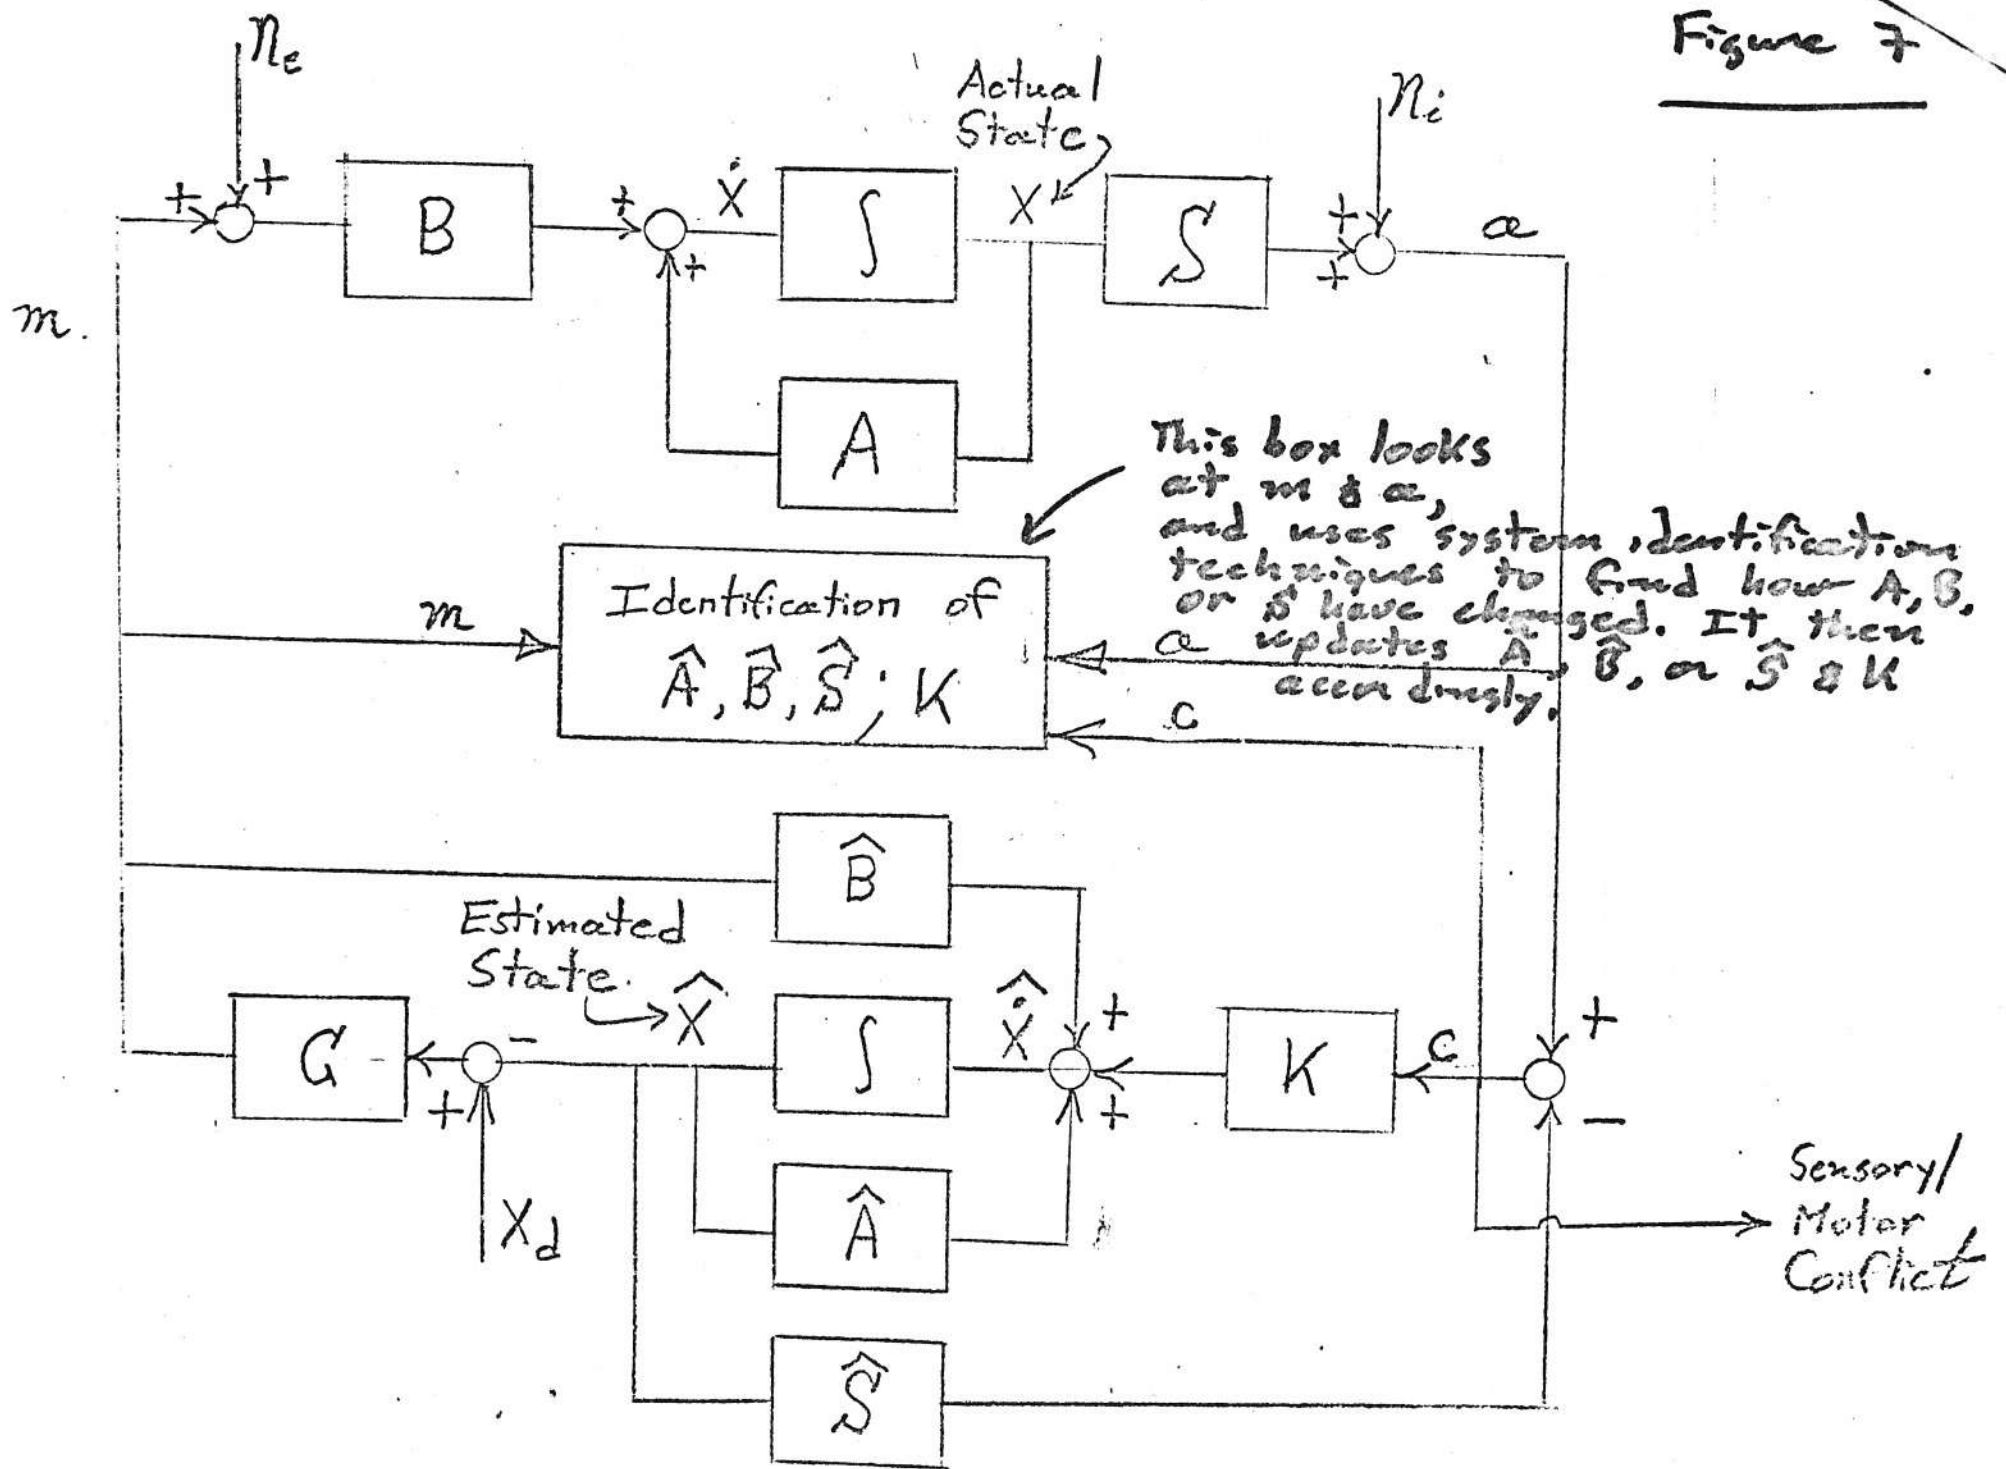 Figure 7
nₑ
Actual
State
nᵢ
+
+
B
+
+
Ẋ
∫
X
S
+
+
a
m.
A
This box looks
at m & a,
and uses system identification
techniques to find how A, B,
or S have changed. It then
updates Â, B̂, or Ŝ & K
accordingly.
m
Identification of
Â, B̂, Ŝ; K
a
c
B̂
Estimated
State
X̂
G
-
+
X_d
∫
Ẋ̂
+
+
K
c
+
-
Â
Sensory/
Motor
Conflict
Ŝ